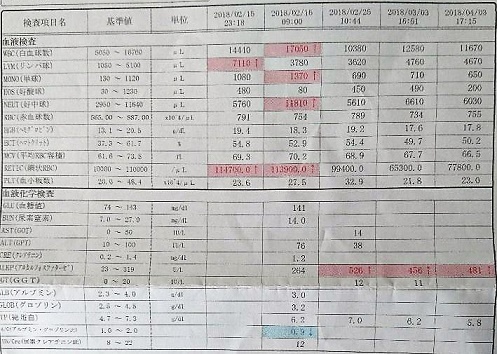 検査項目名 基準値 単位 2018/02/15 23:18 2018/02/16 09:00 2018/02/25 10:44 2018/03/03 16:51 2018/04/03 17:15
血液検査
WBC(白血球数) 5050 ～ 16760 /μL 14410 17050↑ 10380 12580 11670
LYM(リンパ球) 1050 ～ 5100 /μL 7110↑ 3780 3620 4760 4670
MONO(単球) 130 ～ 1120 /μL 1080 1370↑ 690 710 650
EOS(好酸球) 30 ～ 1230 /μL 480 80 450 490 200
NEUT(好中球) 2950 ～ 11640 /μL 5760 11810↑ 5610 6610 6030
RBC(赤血球数) 565.00 ～ 887.00 ×10^4/μL 791 754 789 734 755
HGB(ヘモグロビン) 13.1 ～ 20.5 g/dl 19.4 18.3 19.2 17.6 17.8
HCT(ヘマトクリット) 37.3 ～ 61.7 % 54.8 52.9 54.4 49.7 50.2
MCV(平均RBC容積) fL 69.3 70.2 68.9 67.7 66.5
RETIC(網状RBC) 10000 ～ 110000 /μL 114700.0↑ 113900.0↑ 99400.0 65300.0 77800.0
PLT(血小板数) ×10^4/μL 23.6 27.5 32.9 21.8 23.0
血液化学検査
GLU(血糖値) 74 ～ 143 mg/dl 141
BUN(尿素窒素) 7.0 ～ 27.0 mg/dl 14.0
AST(GOT) 0 ～ 50 U/L 14
ALT(GPT) 10 ～ 100 U/L 76 38
CRE(クレアチニン) 0.2 ～ 1.4 mg/dl 1.2
ALKP(アルカルフォスファターゼ) 23 ～ 212 U/L 264 526↑ 456↑ 481↑
GT(GGT) 0 ～ U/L 12 11
ALB(アルブミン) 2.3 ～ 4.0 g/dl 3.0
GLOB(グロブリン) 2.5 ～ g/dl 3.2
TP(総蛋白) 4.7 ～ g/dl 6.2 7.0 6.2 5.8
1.0 ～ 2.0 0.9↓
8 ～ 22 12